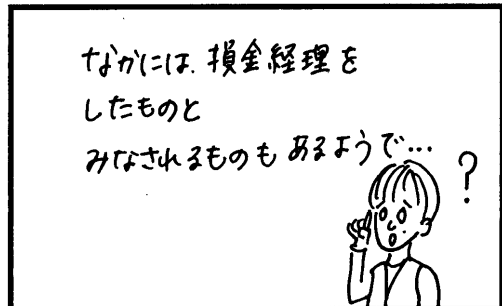 なかには、損金経理を
したものと
みなされるものもあるようで…
?